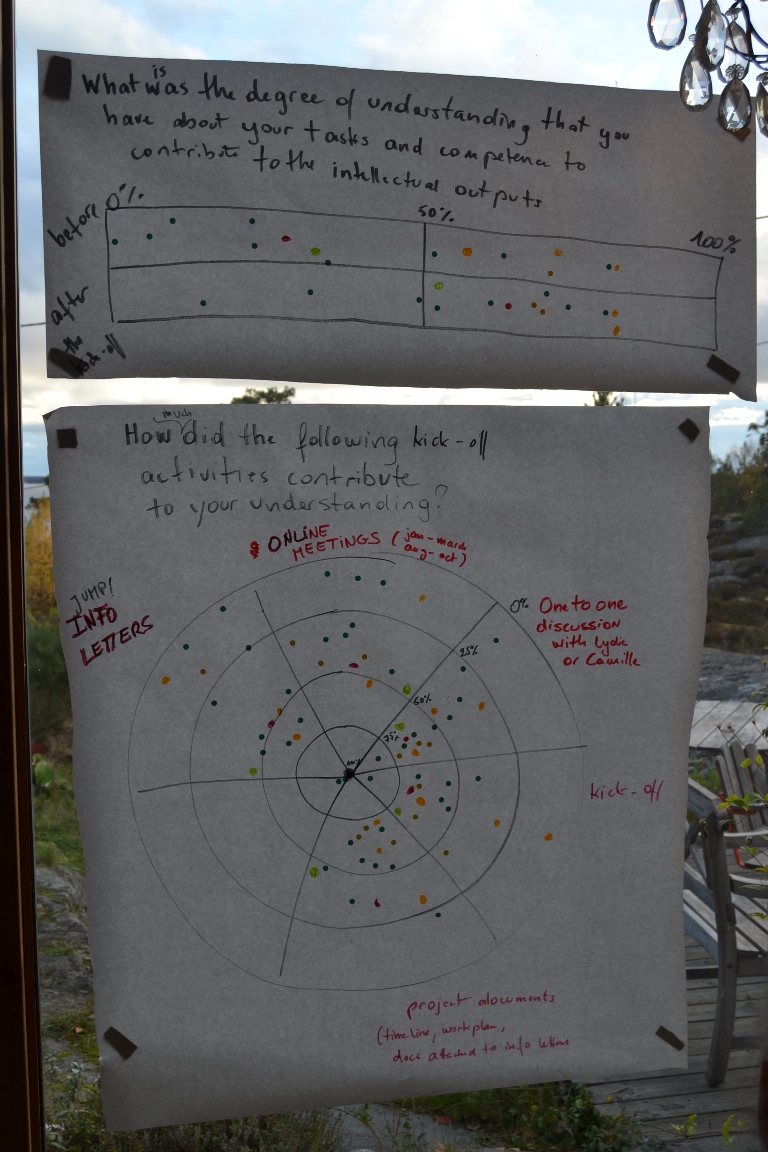 is
What was the degree of understanding that you
have about your tasks and competence to
contribute to the intellectual outputs
before 0% 50% 100%
after
the kick-off
much
How did the following kick-off
activities contribute
to your understanding?
ONLINE
MEETINGS (jan-march
aug-oct)
JUMP!
INFO
LETTERS
0% One to one
discussion
with Lydie
or Camille
25%
50%
75%
kick-off
project documents
(timeline, work plan,
docs attached to info letters